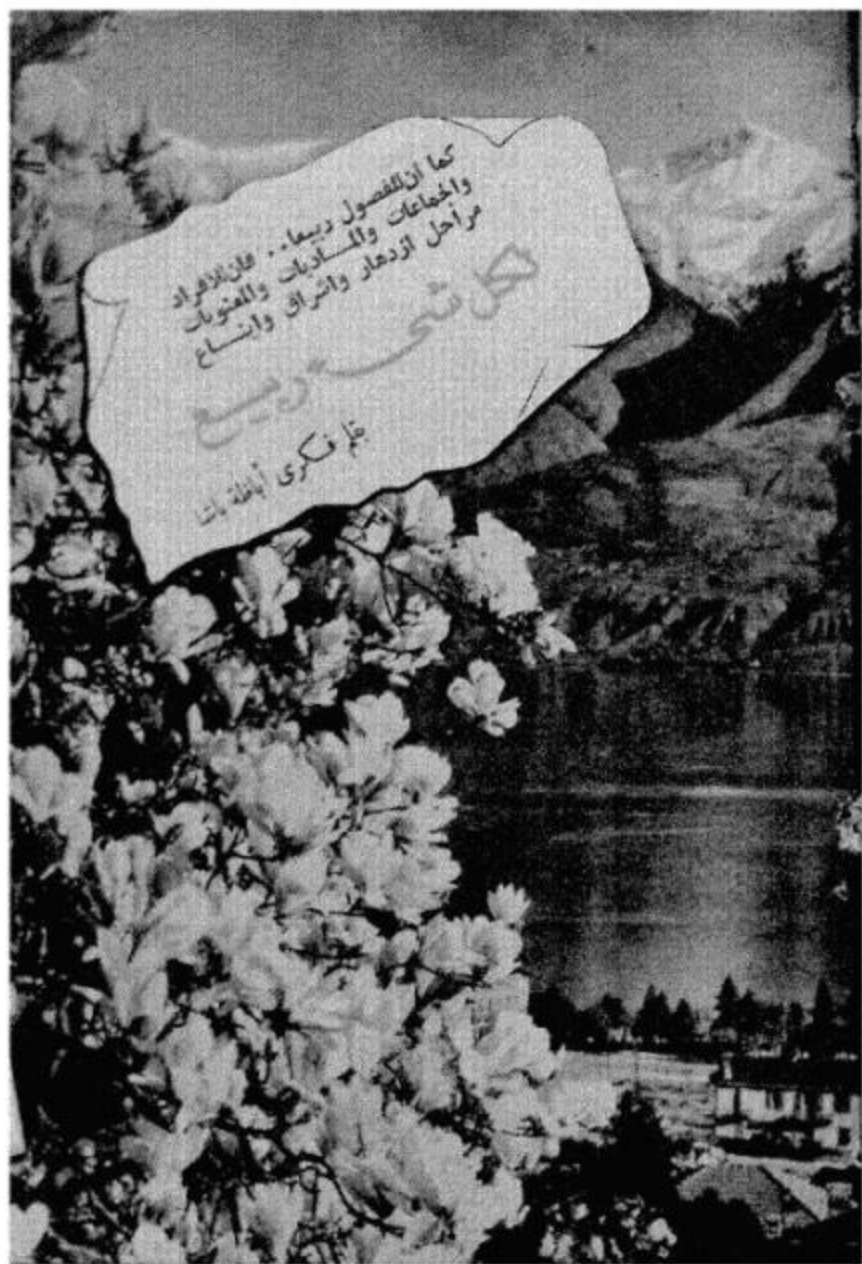 كما ان للفصول ربيعا.. فان للافراد
والجماعات والمـاديات والمعنويات
مراحل ازدهار واشراق وايناع
لكل شىء ربيع
بقلم فكرى أباظة باشا